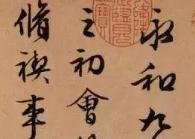 永和九
之初會
脩禊事